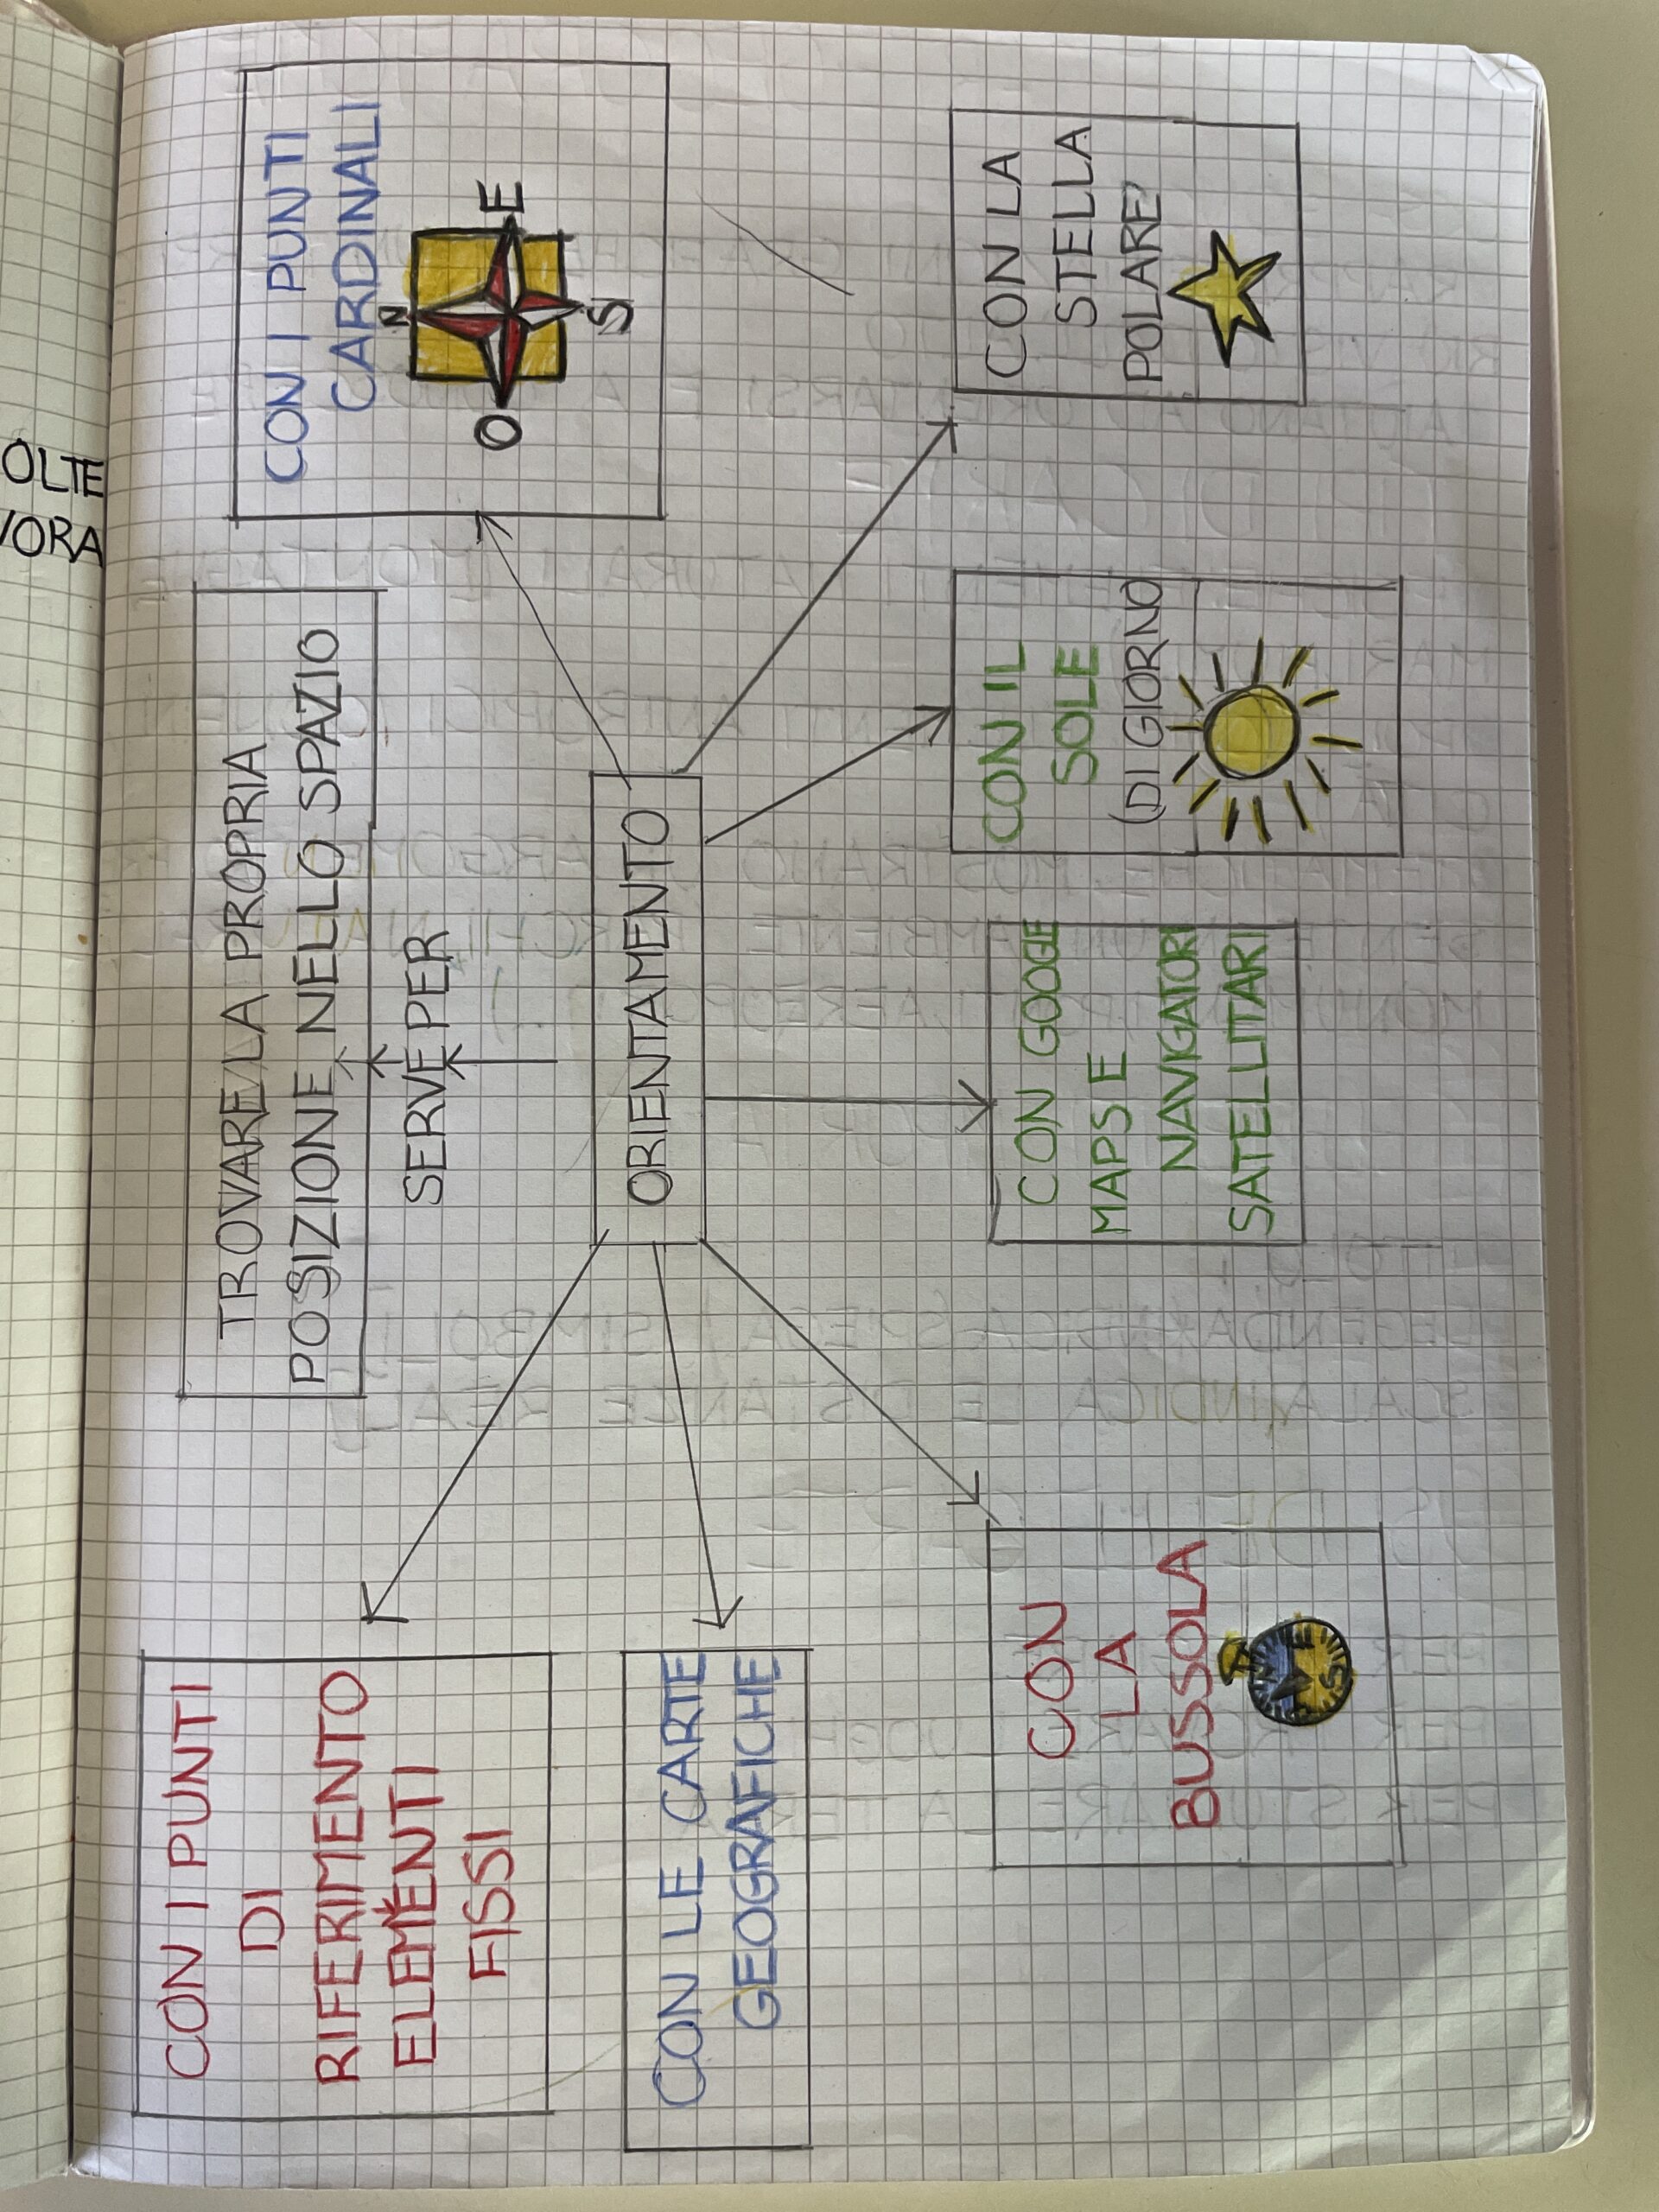 TROVARE LA PROPRIA
POSIZIONE NELLO SPAZIO
SERVE PER
ORIENTAMENTO
CON I PUNTI
DI
RIFERIMENTO
ELEMENTI
FISSI
CON LE CARTE
GEOGRAFICHE
CON
LA
BUSSOLA
N
E
S
CON GOOGLE
MAPS E
NAVIGATORI
SATELLITARI
CON IL
SOLE
(DI GIORNO)
CON LA
STELLA
POLARE
CON I PUNTI
CARDINALI
N
O E
S
OLTE
VORA